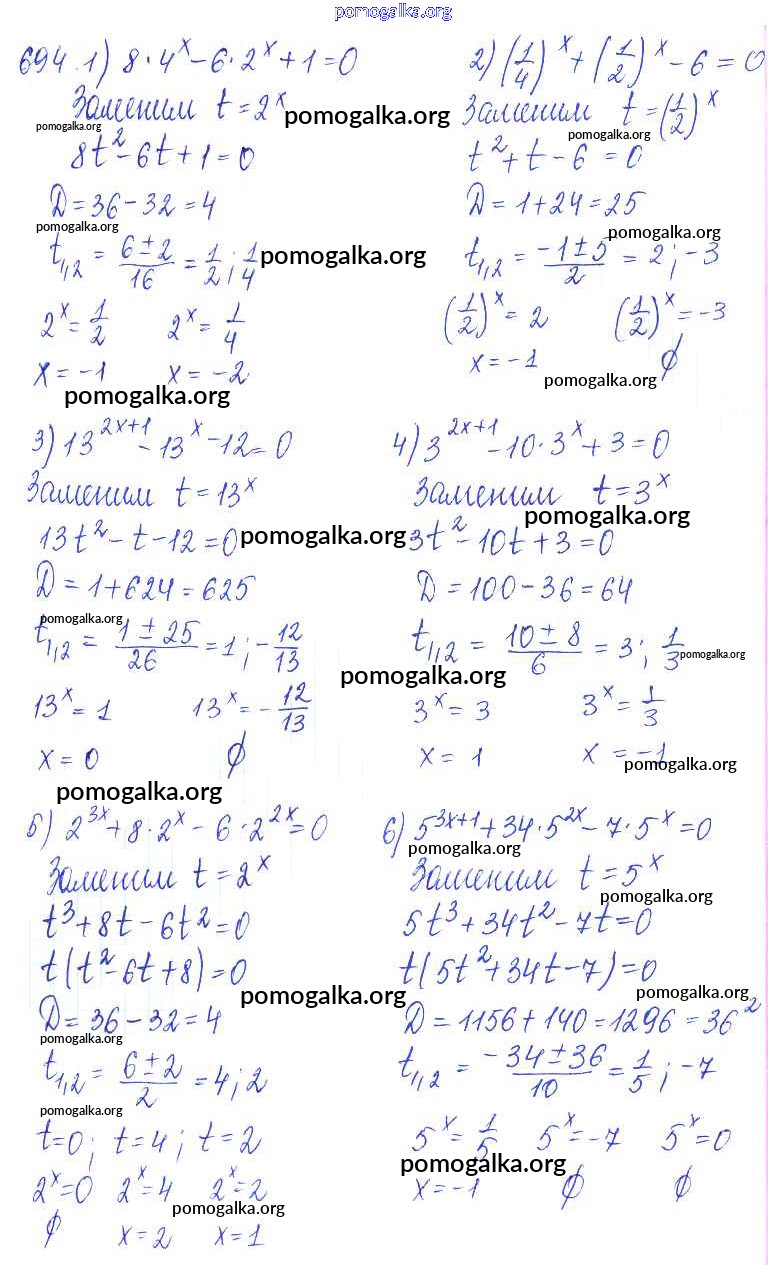 pomogalka.org
694. 1) 8·4^x − 6·2^x + 1 = 0
Заменим t = 2^x
pomogalka.org
pomogalka.org
8t² − 6t + 1 = 0
D = 36 − 32 = 4
pomogalka.org
t₁,₂ = (6 ± 2)/16 = 1/2; 1/4
pomogalka.org
2^x = 1/2   2^x = 1/4
x = −1   x = −2
pomogalka.org
2) (1/4)^x + (1/2)^x − 6 = 0
Заменим t = (1/2)^x
pomogalka.org
t² + t − 6 = 0
D = 1 + 24 = 25
pomogalka.org
t₁,₂ = (−1 ± 5)/2 = 2; −3
(1/2)^x = 2   (1/2)^x = −3
x = −1   ∅
pomogalka.org
3) 13^(2x+1) − 13^x − 12 = 0
Заменим t = 13^x
13t² − t − 12 = 0
pomogalka.org
D = 1 + 624 = 625
pomogalka.org
t₁,₂ = (1 ± 25)/26 = 1; −12/13
13^x = 1   13^x = −12/13
x = 0   ∅
pomogalka.org
4) 3^(2x+1) − 10·3^x + 3 = 0
Заменим t = 3^x
pomogalka.org
3t² − 10t + 3 = 0
D = 100 − 36 = 64
t₁,₂ = (10 ± 8)/6 = 3; 1/3
pomogalka.org
pomogalka.org
3^x = 3   3^x = 1/3
x = 1   x = −1
pomogalka.org
5) 2^(3x) + 8·2^x − 6·2^(2x) = 0
Заменим t = 2^x
t³ + 8t − 6t² = 0
t(t² − 6t + 8) = 0
pomogalka.org
D = 36 − 32 = 4
pomogalka.org
t₁,₂ = (6 ± 2)/2 = 4; 2
pomogalka.org
t = 0; t = 4; t = 2
2^x = 0   2^x = 4   2^x = 2
pomogalka.org
∅   x = 2   x = 1
6) 5^(3x+1) + 34·5^(2x) − 7·5^x = 0
pomogalka.org
Заменим t = 5^x
pomogalka.org
5t³ + 34t² − 7t = 0
t(5t² + 34t − 7) = 0
pomogalka.org
D = 1156 + 140 = 1296 = 36²
t₁,₂ = (−34 ± 36)/10 = 1/5; −7
5^x = 1/5   5^x = −7   5^x = 0
pomogalka.org
x = −1   ∅   ∅